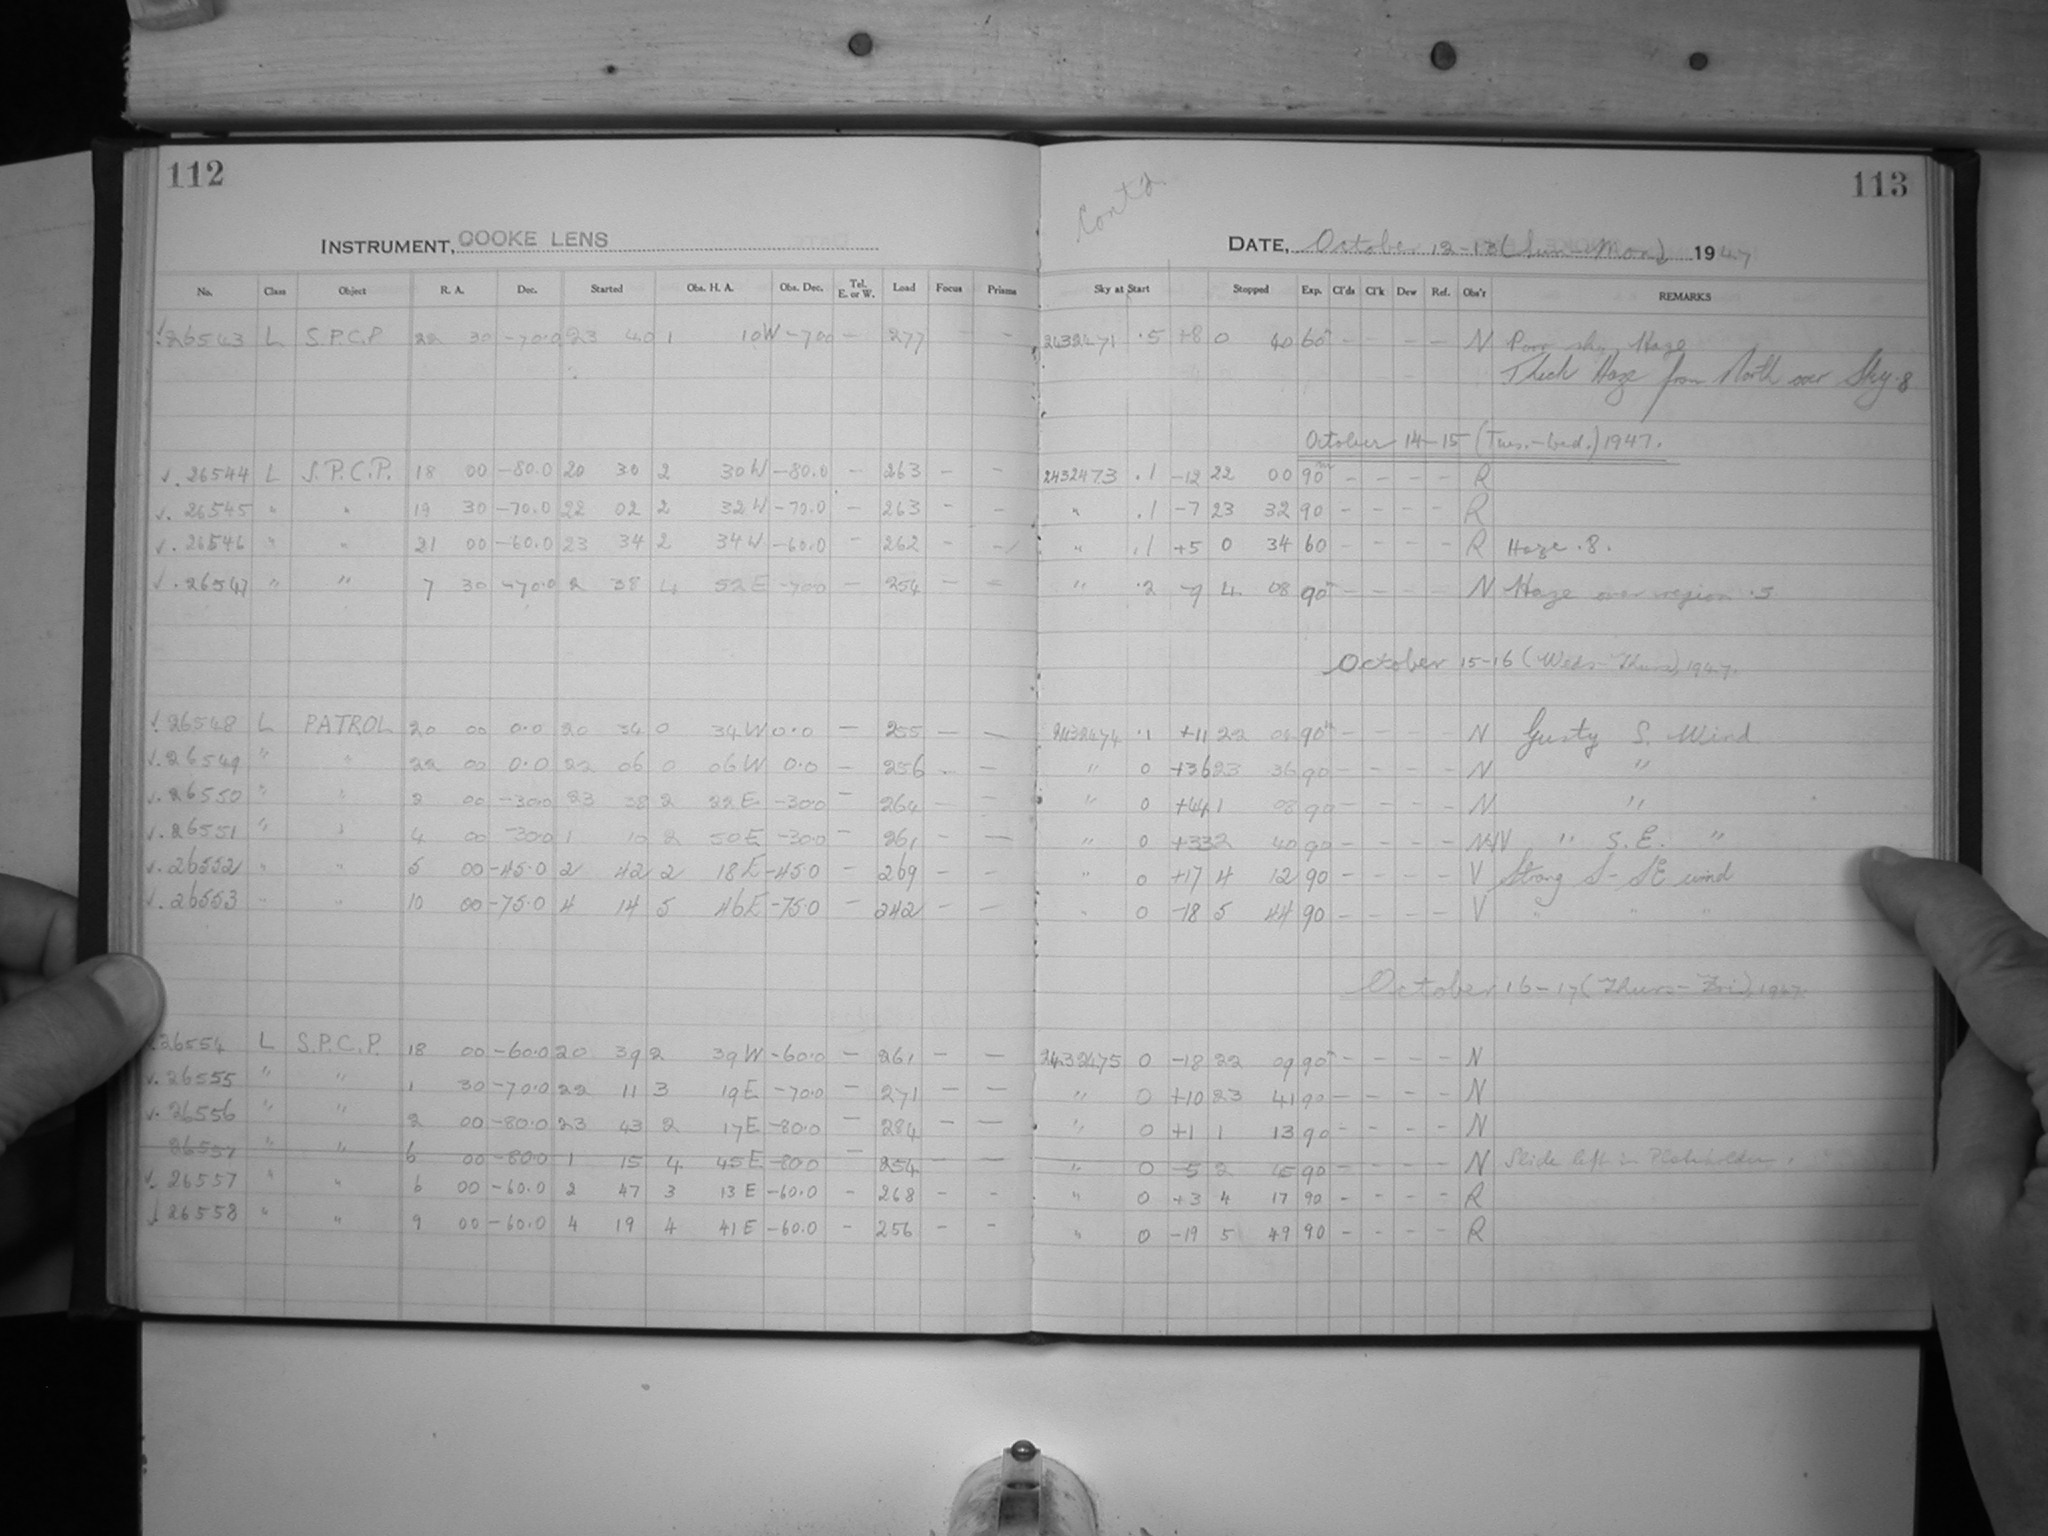 112
113
Cont'd
INSTRUMENT, COOKE LENS
DATE, October 12-13 (Sun-Mon) 1947
No. Class Object R. A. Dec. Started Obs. H. A. Obs. Dec. Tel. E. or W. Load Focus Prisms Sky at Start Stopped Exp. Cl'ds Cl'k Dew Ref. Obs'r REMARKS
√ 26543 L S.P.C.P 22 30 -70.0 23 40 1 10W -70.0 — 277 — — 2432471 .5 +8 0 40 60 - - - - N Poor sky, Haze
Thick Haze from North over Sky .8
October 14-15 (Tues.-Wed.) 1947.
√. 26544 L S.P.C.P. 18 00 -80.0 20 30 2 30W -80.0 - 263 - - 2432473 .1 -12 22 00 90 - - - - R
√. 26545 " " 19 30 -70.0 22 02 2 32W -70.0 - 263 - - " .1 -7 23 32 90 - - - - R
√. 26546 " " 21 00 -60.0 23 34 2 34W -60.0 - 262 - - " .1 +5 0 34 60 - - - - R Haze .8.
√. 26547 " " 7 30 -70.0 2 38 4 52E -70.0 — 254 - - " .2 -9 4 08 90 - - - - N Haze over region .5
October 15-16 (Weds-Thurs) 1947.
√. 26548 L PATROL 20 00 0.0 20 34 0 34W 0.0 — 255 — — 2432474 .1 +11 22 04 90 - - - - N Gusty S. Wind
√. 26549 " " 22 00 0.0 22 06 0 06W 0.0 — 256 — — " 0 +36 23 36 90 - - - - N "
√. 26550 " " 2 00 -30.0 23 38 2 22E -30.0 — 264 — — " 0 +44 1 08 90 - - - - N "
√. 26551 " " 4 00 -30.0 1 10 2 50E -30.0 — 261 — — " 0 +33 2 40 90 - - - - N-V " S.E. "
√. 26552 " " 5 00 -45.0 2 42 2 18E -45.0 — 269 - - " 0 +17 4 12 90 - - - - V Strong S-SE wind
√. 26553 " " 10 00 -75.0 4 14 5 46E -75.0 — 242 — — " 0 -18 5 44 90 - - - - V " " "
October 16-17 (Thurs-Fri), 1947.
√. 26554 L S.P.C.P. 18 00 -60.0 20 39 2 39W -60.0 — 261 — — 2432475 0 -18 22 09 90 - - - - N
√. 26555 " " 1 30 -70.0 22 11 3 19E -70.0 — 271 — — " 0 +10 23 41 90 - - - - N
√. 26556 " " 2 00 -80.0 23 43 2 17E -80.0 — 284 — — " 0 +1 1 13 90 - - - - N
26557 " " 6 00 -80.0 1 15 4 45E -80.0 — 254 — — " 0 -5 2 45 90 - - - - N Slide left in Plateholder.
√. 26557 " " 6 00 -60.0 2 47 3 13E -60.0 - 268 - - " 0 +3 4 17 90 - - - - R
√ 26558 " " 9 00 -60.0 4 19 4 41E -60.0 - 256 - - " 0 -19 5 49 90 - - - - R